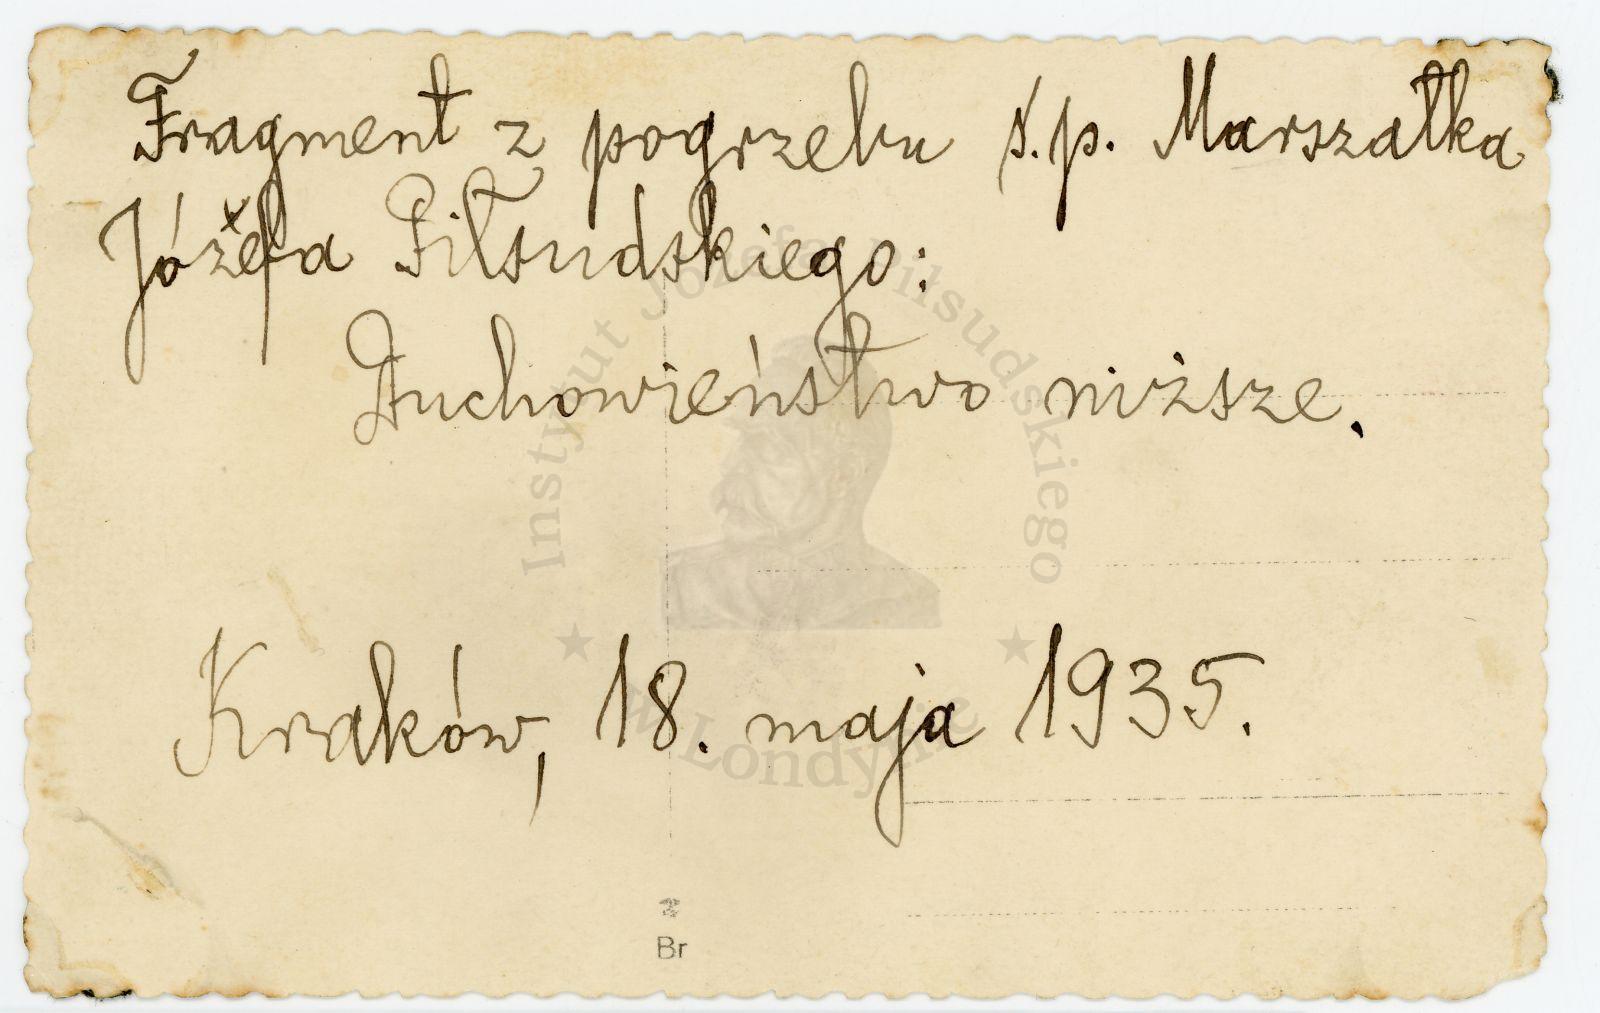 Fragment z pogrzebu ś.p. Marszałka
Józefa Piłsudskiego:
Duchowieństwo niższe.
Kraków, 18. maja 1935.
Instytut Józefa Piłsudskiego
w Londynie
Br